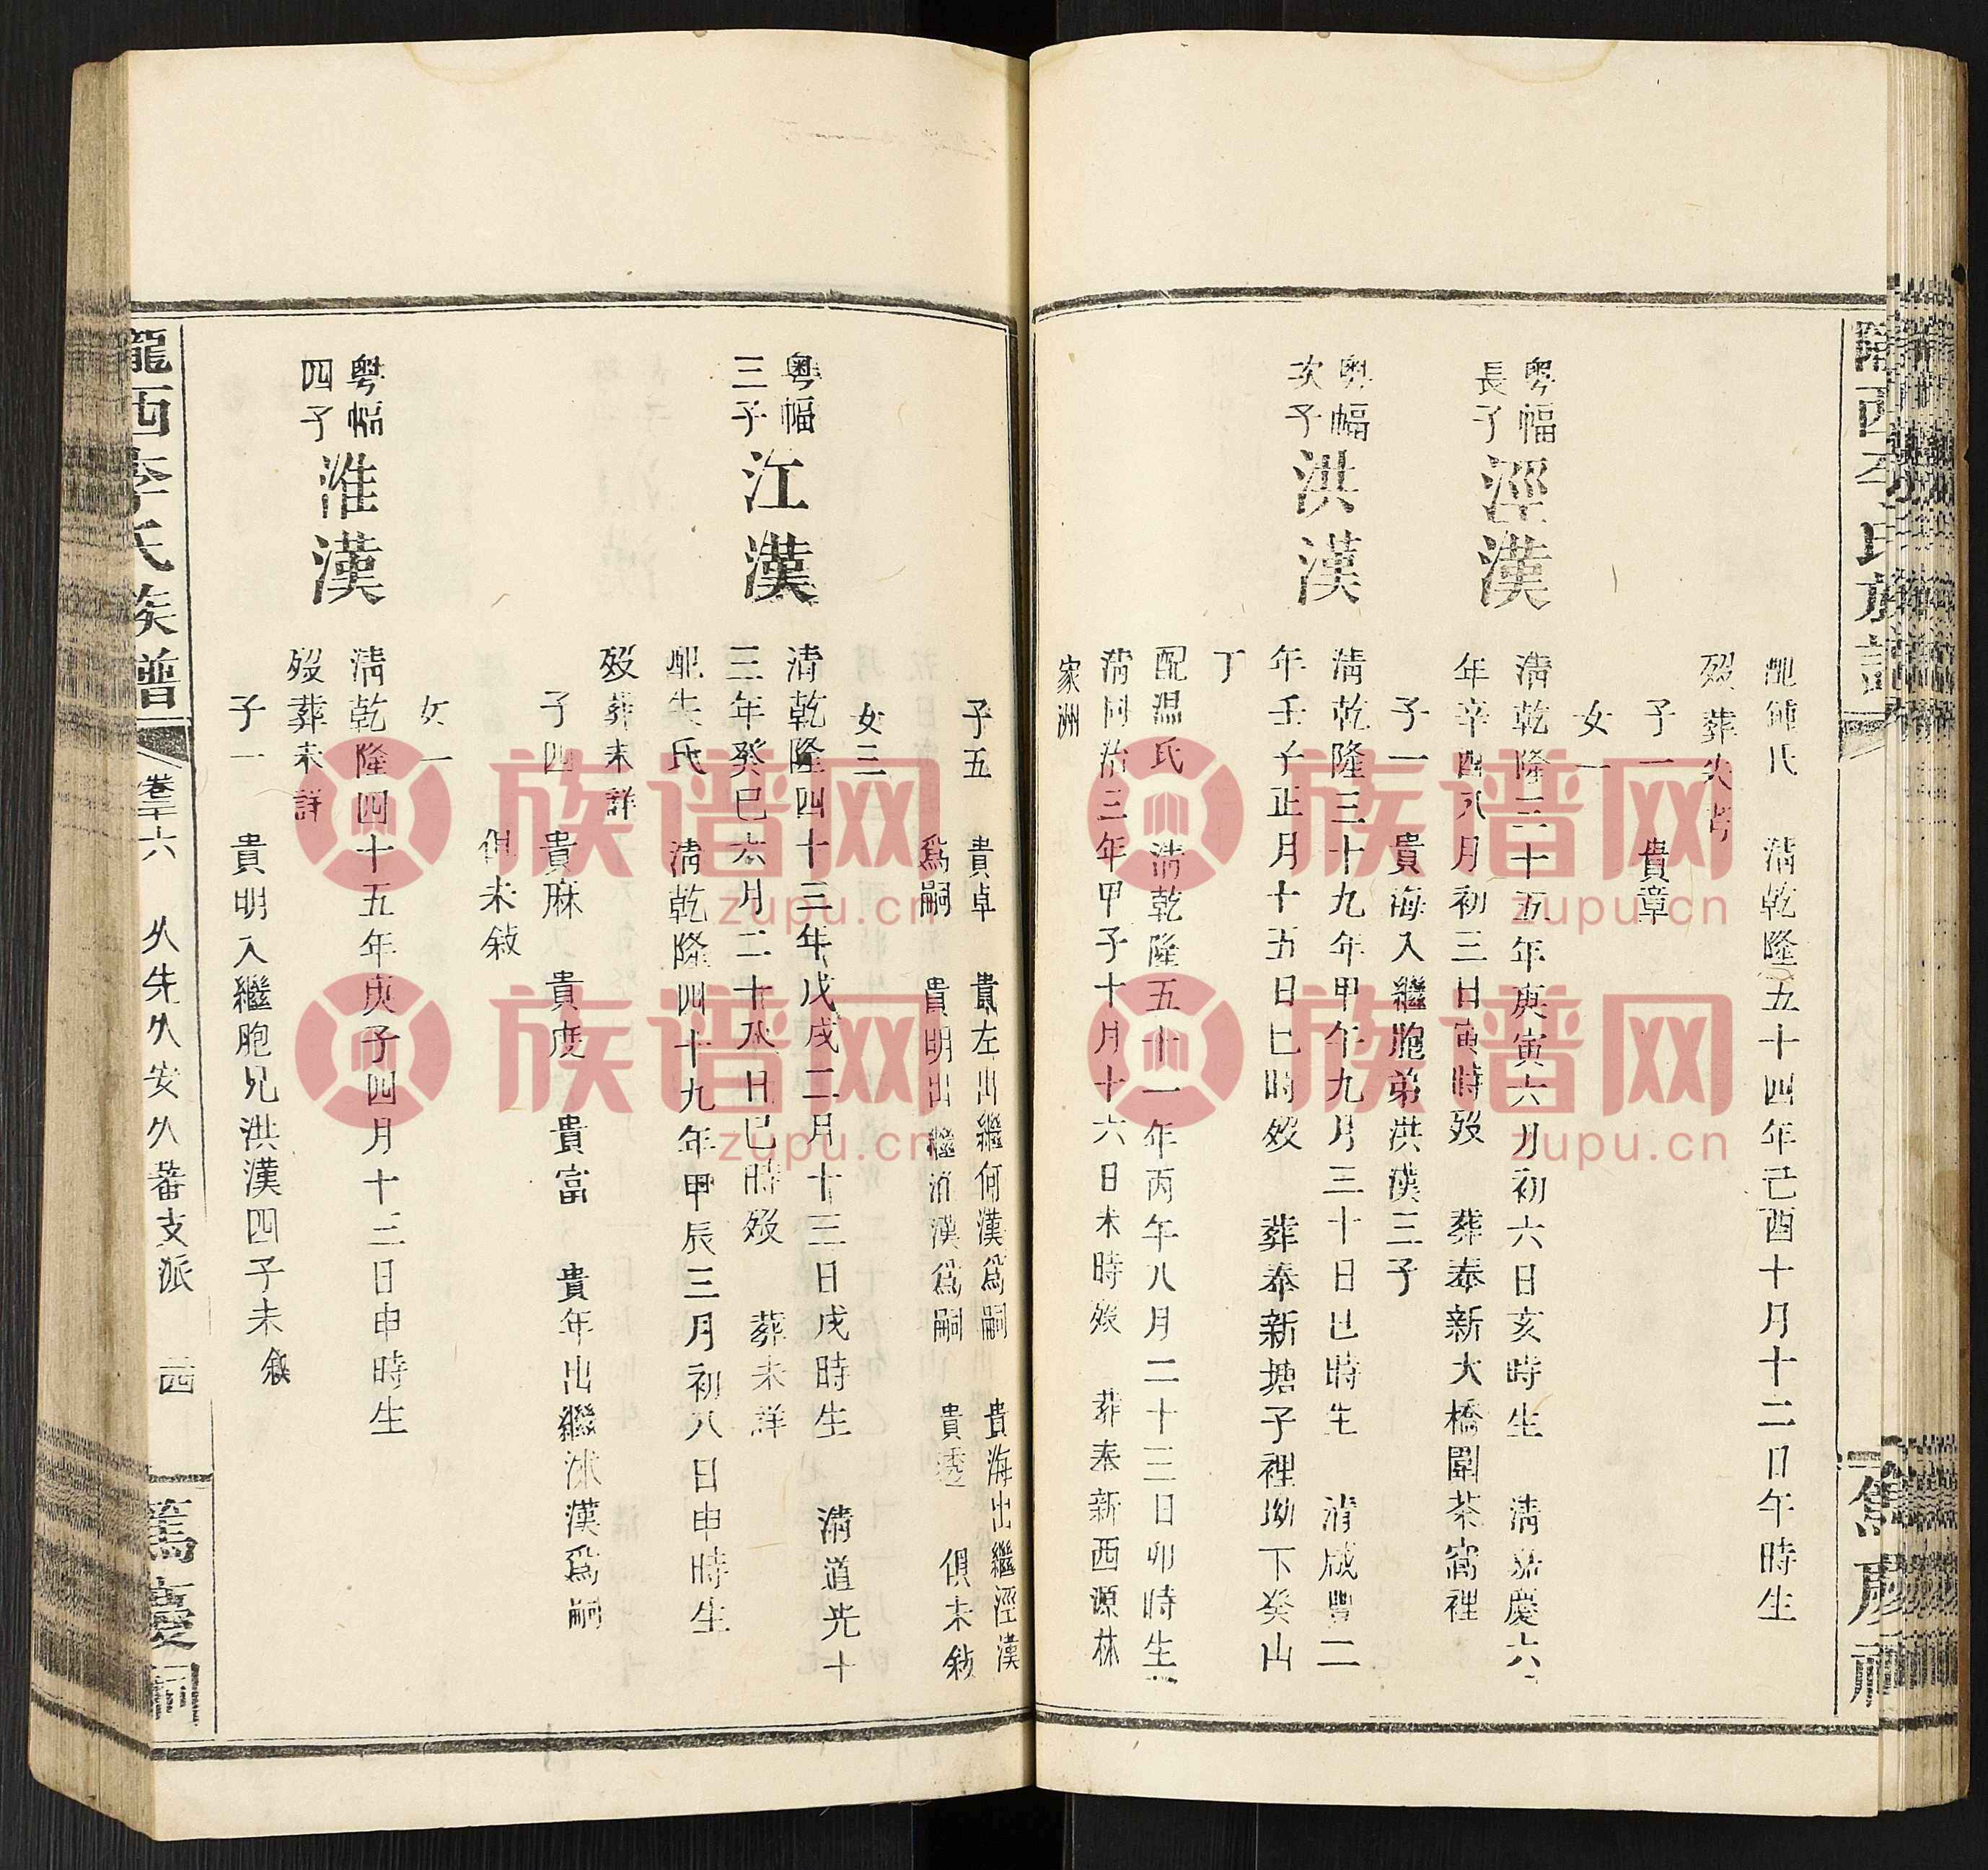 配鍾氏 清乾隆五十四年己酉十月十二日午時生
歿葬失考
子一 貴章
女一
粵幅長子 涇漢 清乾隆三十五年庚寅六月初六日亥時生 清嘉慶六
年辛酉八月初三日寅時歿 葬奉新大橋圍茶窩裡
子一 貴海入繼胞弟洪漢三子
粵幅次子 洪漢 清乾隆三十九年甲午九月三十日巳時生 清咸豐二
年壬子正月十五日巳時歿 葬奉新塘子裡坳下癸山
丁
配溫氏 清乾隆五十一年丙午八月二十三日卯時生
清同治三年甲子十月十六日未時歿 葬奉新西源林
家洲
子五 貴卓 貴左出繼何漢爲嗣 貴海出繼涇漢
爲嗣 貴明出繼淮漢爲嗣 貴透 俱未敘
女三
粵幅三子 江漢 清乾隆四十三年戊戌二月十三日戌時生 清道光十
三年癸巳六月二十八日巳時歿 葬未詳
配朱氏 清乾隆四十九年甲辰三月初八日申時生
歿葬未詳
子四 貴麻 貴度 貴富 貴年出繼洣漢爲嗣
俱未敘
女一
粵幅四子 淮漢 清乾隆四十五年庚子四月十三日申時生
歿葬未詳
子一 貴明入繼胞兄洪漢四子未敘
隴西李氏族譜 卷三十六 久先久安久蕃支派 二四 篤慶祠
族谱网
zupu.cn
族谱网
zupu.cn
族谱网
zupu.cn
族谱网
zupu.cn